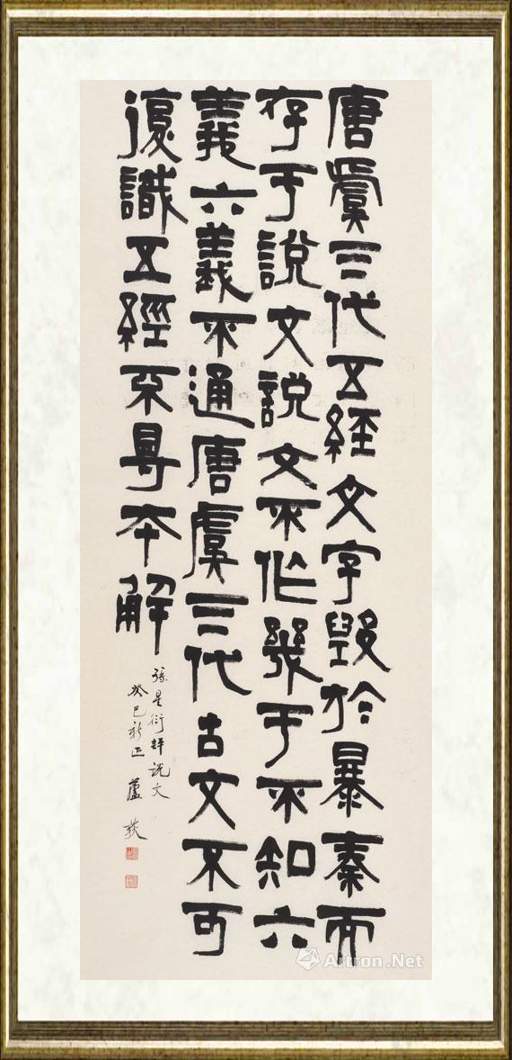 唐虞三代五經文字毀於暴秦而
存于說文說文不作幾于不知六
義六義不通唐虞三代古文不可
復識五經不得本解
孫星衍評說文
癸巳新正 蘆荻
Artron.Net